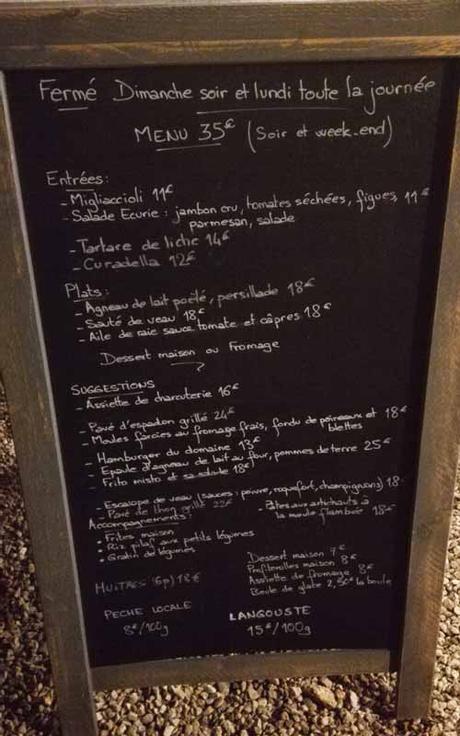 Fermé Dimanche soir et lundi toute la journée
MENU 35€ (Soir et week-end)
Entrées:
- Migliaccioli 11€
- Salade Ecurie : jambon cru, tomates séchées, figues, 11€
parmesan, salade
- Tartare de liche 14€
- Curadella 12€
Plats:
- Agneau de lait poêlé, persillade 18€
- Sauté de veau 18€
- Aile de raie sauce tomate et câpres 18€
Dessert maison ou Fromage
SUGGESTIONS
- Assiette de charcuterie 16€
- Pavé d'espadon grillé 24€
- Moules farcies au fromage frais, fondu de poireaux et 18€
blettes
- Hamburger du domaine 13€
- Epaule d'agneau de lait au four, pommes de terre 25€
- Frito misto et sa salade 18€
- Escalope de veau (sauces: poivre, roquefort, champignons) 18
- Pavé de thon grillé 22€
- Pâtes aux artichauts à
la meule flambée 18€
Accompagnements:
• Frites maison
• Riz pilaf aux petits légumes
• Gratin de légumes
Dessert maison 7€
Profiterolles maison 8€
Assiette de fromage 8€
Boule de glace 2,50€ la boule
HUITRES (6p) 18€
PECHE LOCALE
8€/100g
LANGOUSTE
15€/100g